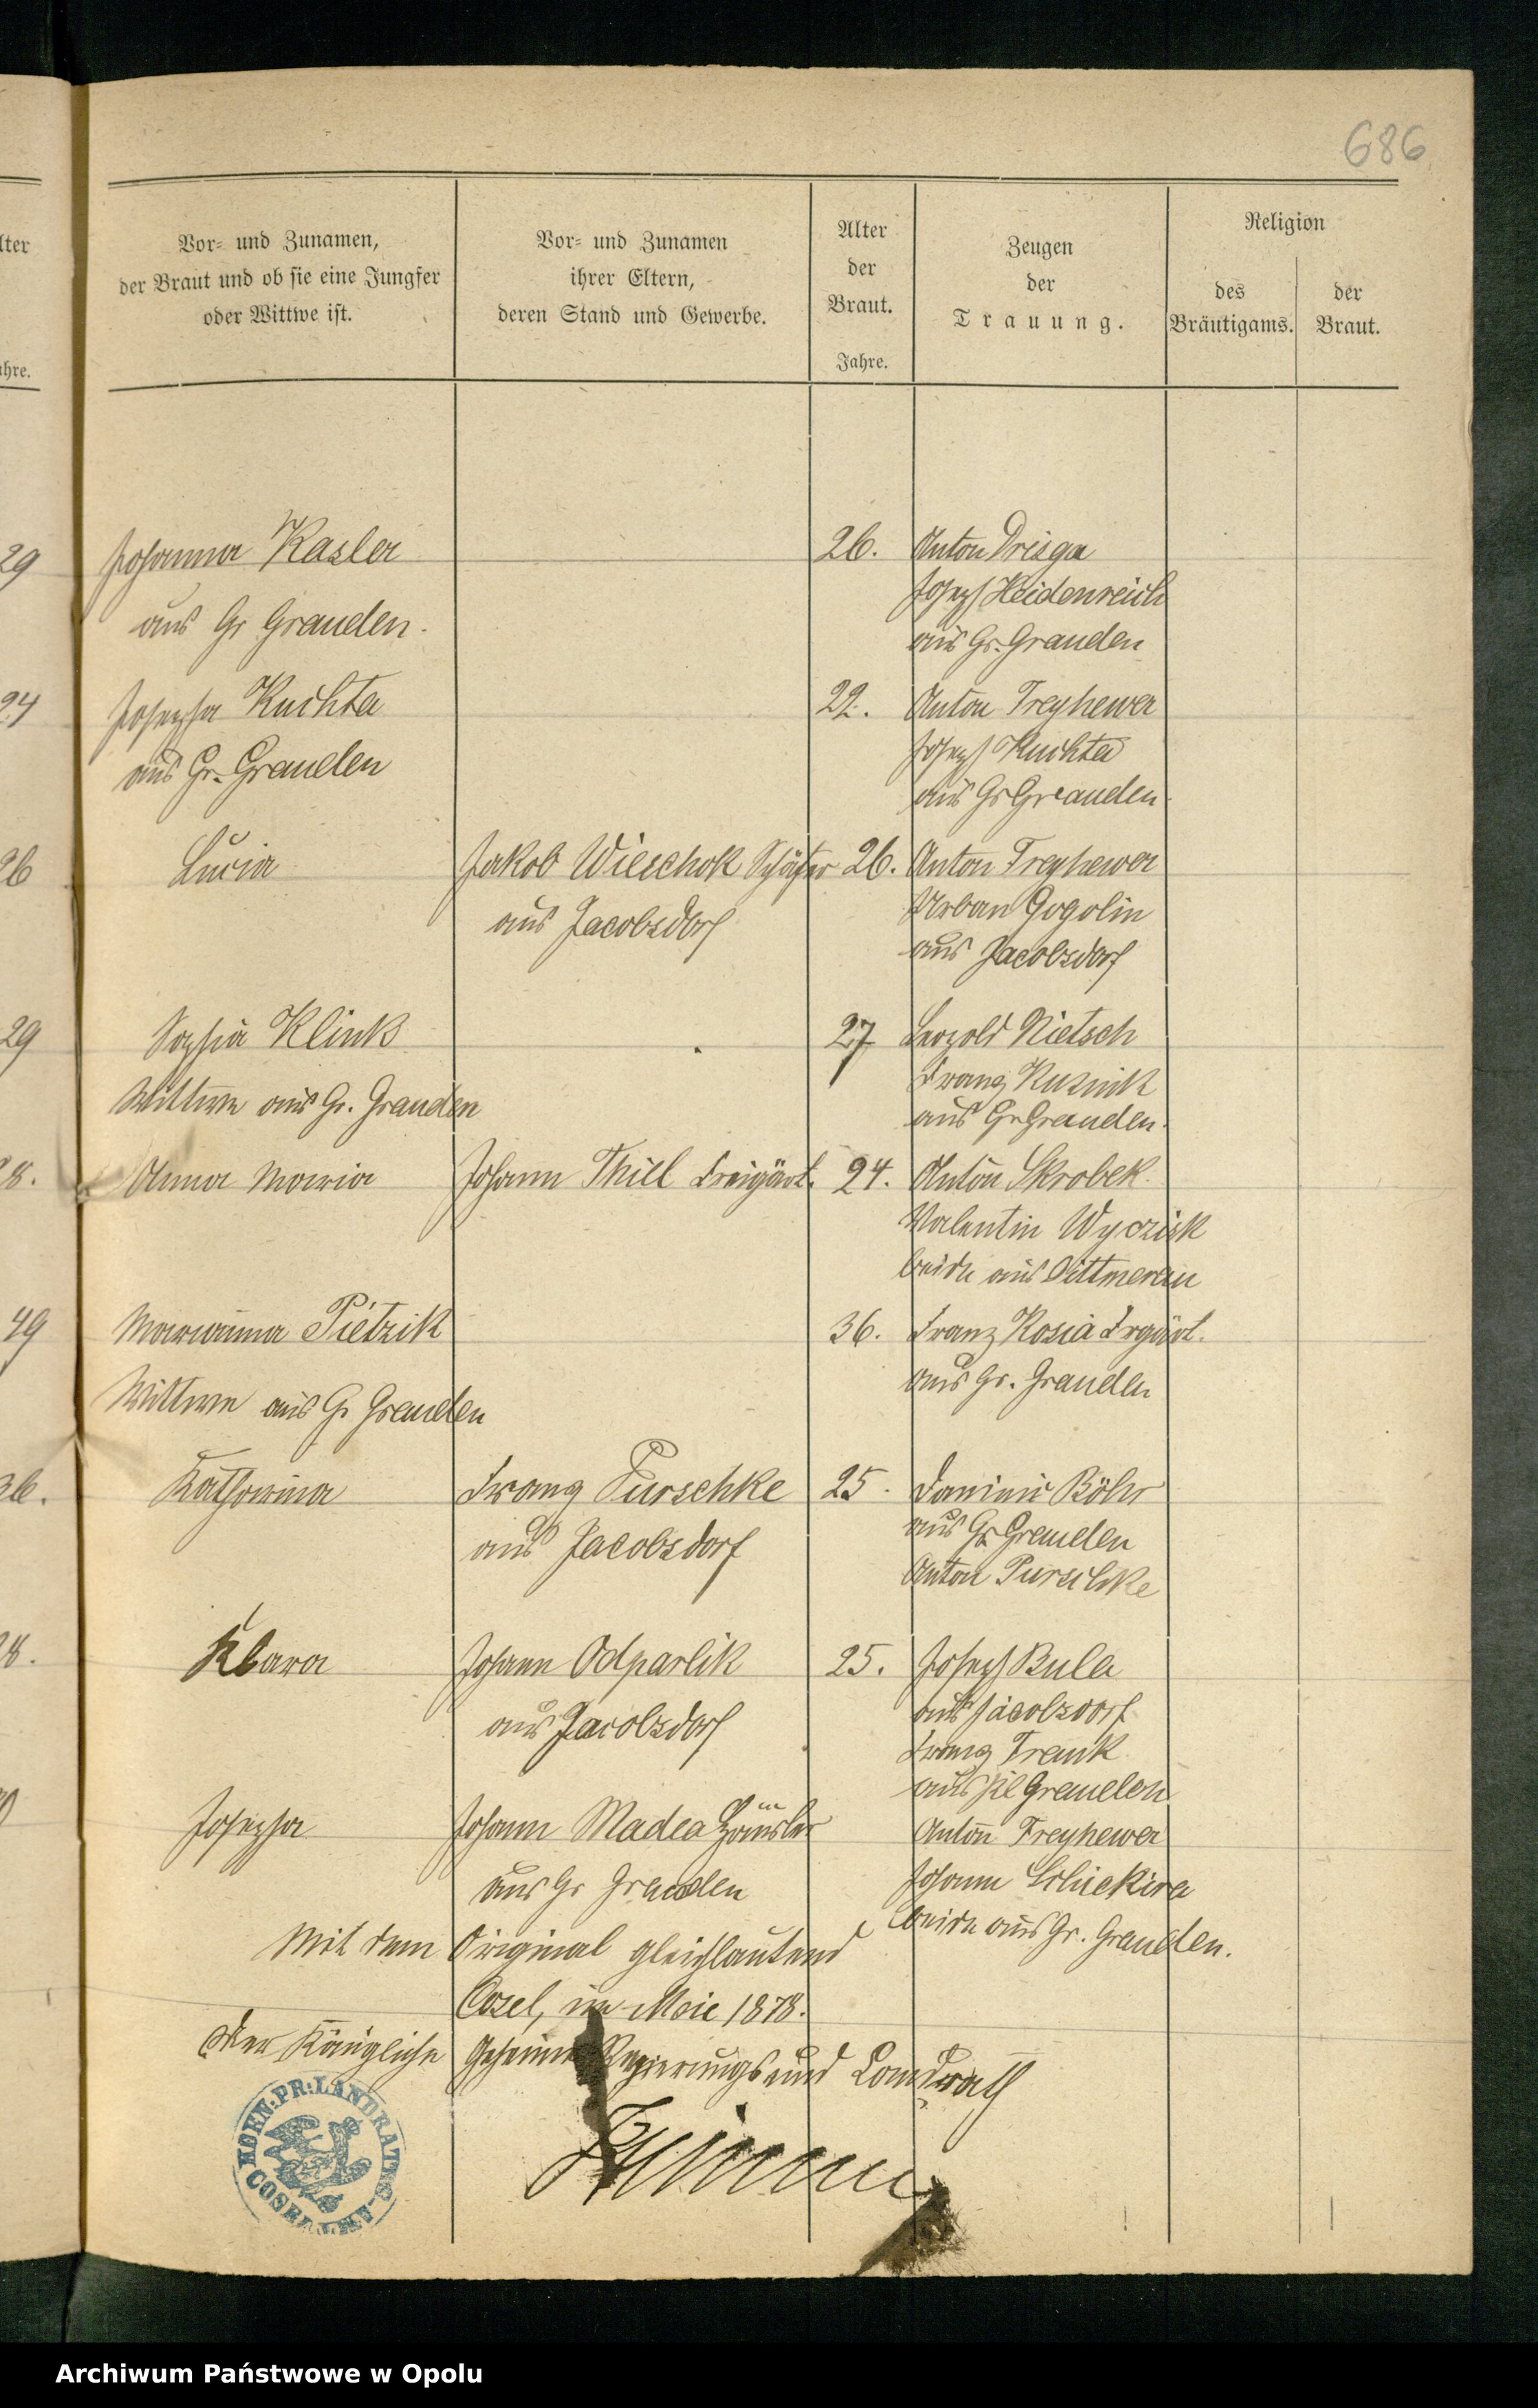 686
lter
ahre.
Vor- und Zunamen,
der Braut und ob sie eine Jungfer
oder Wittwe ist.
Vor- und Zunamen
ihrer Eltern,
deren Stand und Gewerbe.
Alter
der
Braut.
Jahre.
Zeugen
der
Trauung.
Religion
des
Bräutigams.
der
Braut.
29
Johanna Kasler
26.
Anton Drisga
aus Gr Grauden.
Joseph Heidenreich
aus Gr. Grauden
24
Josepha Kuchta
22.
Anton Freyhewer
aus Gr. Grauden
Joseph Kuchta
aus Gr Grauden.
26
Lucia
Jakob Wieschok Schäfer
26.
Anton Freyhewer
aus Jacobsdorf
Urban Gogolin
aus Jacobsdorf
29
Sophia Klink
27
Leopold Nietsch
Wittwe aus Gr. Grauden
Franz Kusnik
aus Gr Grauden.
8.
Anna Maria
Johann Thiel Freigärt.
24.
Anton Skrobek.
Valentin Wyczisk
beide aus Dittmerau
49
Marianna Pietzik
36.
Franz Kosia Frgärt.
Wittwe aus Gr Grauden
aus Gr. Grauden
36.
Katharina
Franz Purschke
25.
Dominic Böhr
aus Jacobsdorf
aus Gr Grauden
Anton Purschke
8.
Klara
Johann Odparlik
25.
Joseph Bula
aus Jacobsdorf
aus Jacobsdorf
Franz Trenk
aus Kl Grauden
Josepha
Johann Madea Häusler
Anton Freyhewer
aus Gr Grauden
Johann
beide aus Gr. Grauden.
Mit dem Original gleichlautend
Cosel, im Mai 1878.
Der Königliche Geheime Regierungs und Landrath
KOEN: PR: LANDRATHS-AMT
COSEL
Archiwum Państwowe w Opolu